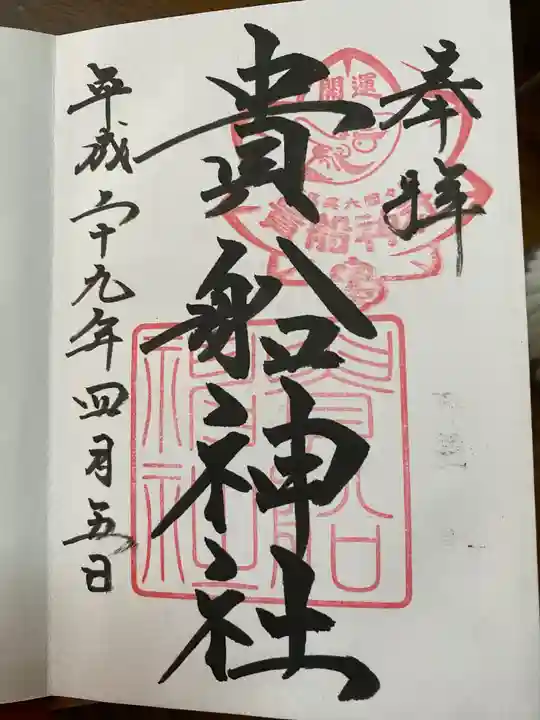 奉拝
開運
貴船神社
貴船神社
貴船神社
平成二十九年四月五日